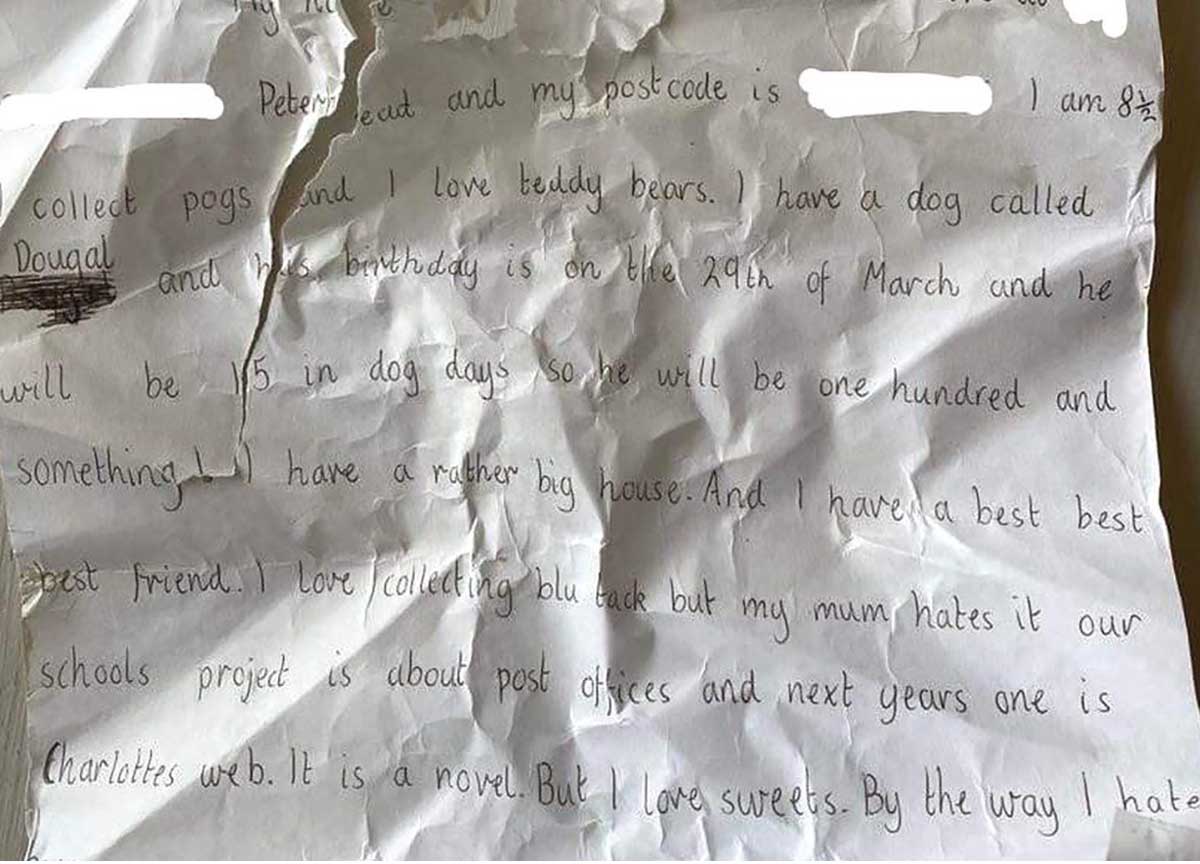 Peterhead and my postcode is I am 8½
collect pogs and I love teddy bears. I have a dog called
Dougal and his birthday is on the 29th of March and he
will be 15 in dog days so he will be one hundred and
something! I have a rather big house. And I have a best best
best friend. I love collecting blu tack but my mum hates it our
schools project is about post offices and next years one is
Charlottes web. It is a novel. But I love sweets. By the way I hate